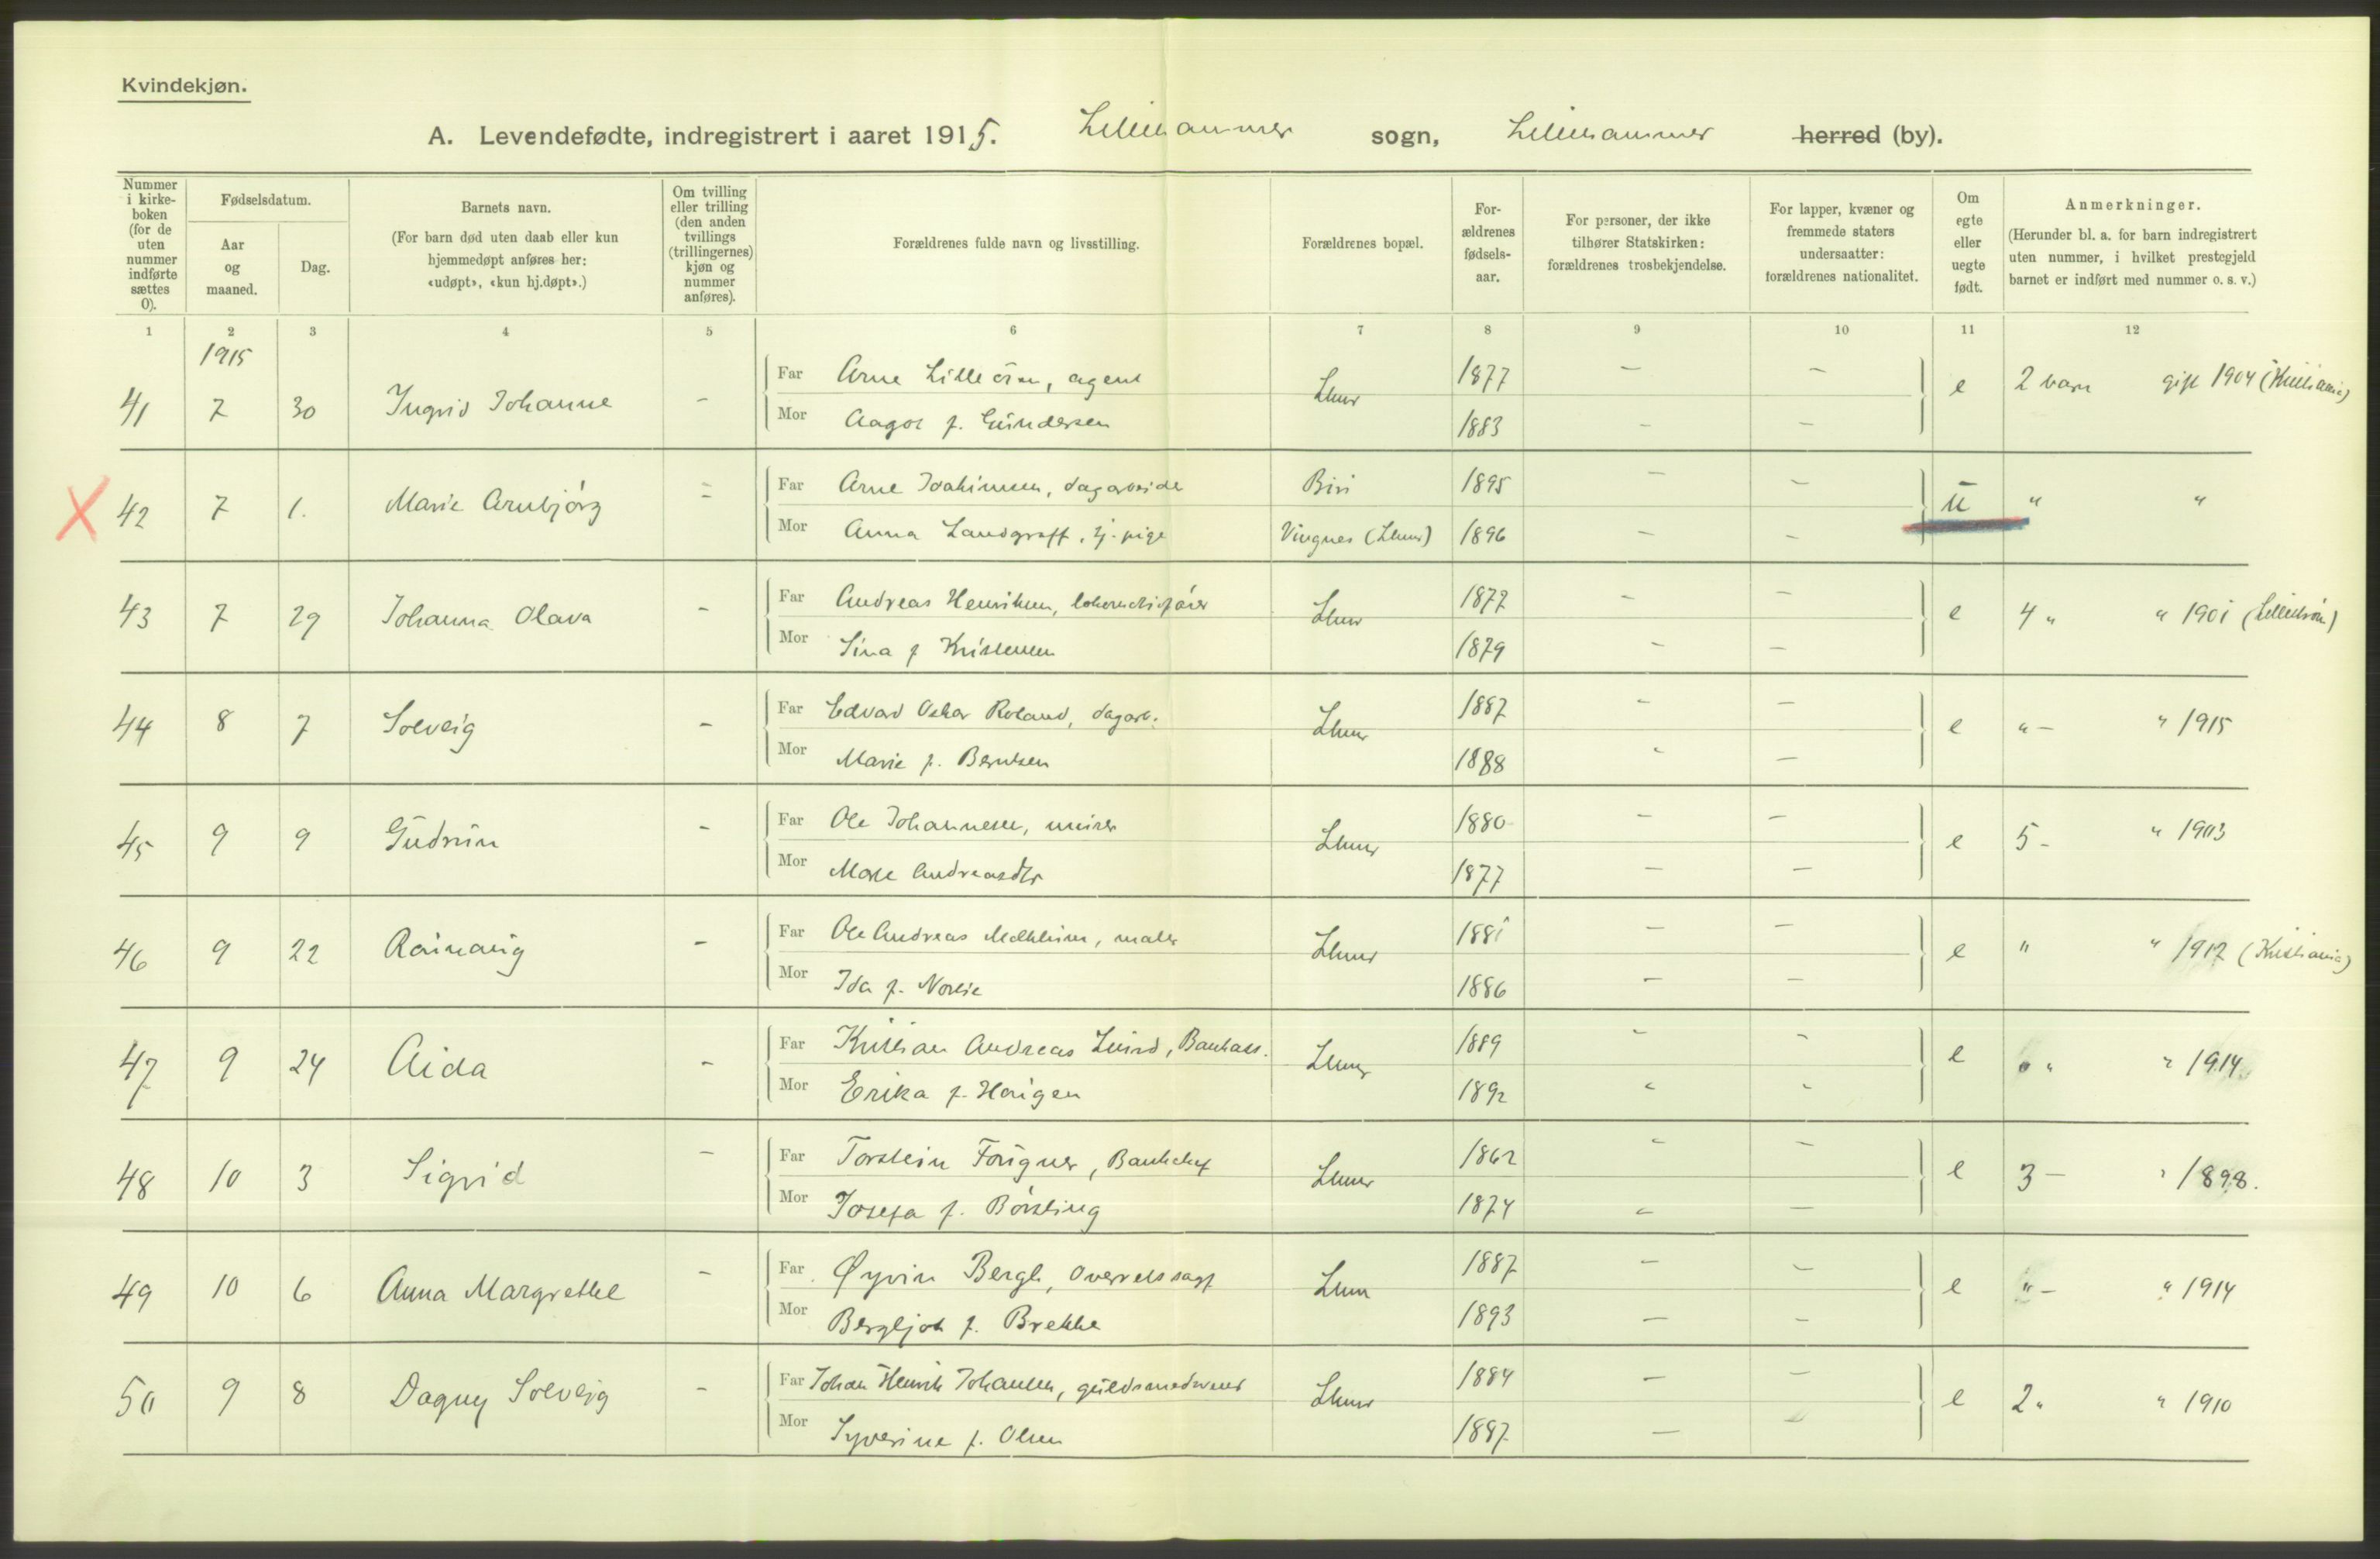 Kvindekjøn.
A. Levendefødte, indregistrert i aaret 1915. Lillehammer sogn, Lillehammer herred (by).
Nummer i kirke-boken (for de uten nummer indførte sættes 0).
Fødselsdatum.
Aar og maaned.
Dag.
Barnets navn.
(For barn død uten daab eller kun hjemmedøpt anføres her: «udøpt», «kun hj.døpt».)
Om tvilling eller trilling (den anden tvillings (trillingernes) kjøn og nummer anføres).
Forældrenes fulde navn og livsstilling.
Forældrenes bopæl.
For-ældrenes fødsels-aar.
For personer, der ikke tilhører Statskirken: forældrenes trosbekjendelse.
For lapper, kvæner og fremmede staters undersaatter: forældrenes nationalitet.
Om egte eller uegte født.
Anmerkninger.
(Herunder bl. a. for barn indregistrert uten nummer, i hvilket prestegjeld barnet er indført med nummer o. s. v.)
1 2 3 4 5 6 7 8 9 10 11 12
1915
Far Arne Lilleøien, agent 1877 – –
41 7 30 Ingrid Johanne – Lhmr e 2 barn gift 1904 (Kristiania)
Mor Aagot f. Gundersen 1883 – –
Far Arne Joakimsen, dagarbeide Biri 1895 – –
X 42 7 1. Marie Arnbjørg – u " "
Mor Anna Landgraff, tj. pige Vingnes (Lhmr) 1896 – –
Far Andreas Henriksen, lokomotivfører 1872 – –
43 7 29 Johanna Olava – Lhmr e 4 " " 1901 (Lillestrøm)
Mor Sina f Kristensen 1879 – –
Far Edvard Oskar Roland, dagarb. 1887 – –
44 8 7 Solveig – Lhmr e " – " 1915
Mor Marie f. Berntsen 1888 " –
Far Ole Johannesen, murer 1880 – –
45 9 9 Gudrun – Lhmr e 5 – " 1903
Mor Marte Andreasdtr 1877 – –
Far Ole Andreas Melkheim, maler 1881 – –
46 9 22 Raunaug – Lhmr e " " 1912 (Kristiania)
Mor Ida f. Norlie 1886 – –
Far Kristian Andreas Lund, Bankass. 1889 – –
47 9 24 Aida – Lhmr e 0 " " 1914
Mor Erika f. Haugen 1892 " "
Far Torstein Fougner, Bankchef 1862 – –
48 10 3 Sigrid – Lhmr e 3 – " 1898.
Mor Josefa f. Børsting 1874 – –
Far Øyvin Bergh, overretssagf 1887 – –
49 10 6 Anna Margrethe – Lhm e " – " 1914
Mor Bergljot f. Brekke 1893 – –
Far Johan Henrik Johansen, guldsmedsvend 1884 – –
50 9 8 Dagny Solveig – Lhmr e 2 " " 1910
Mor Syverine f. Olsen 1887 – –